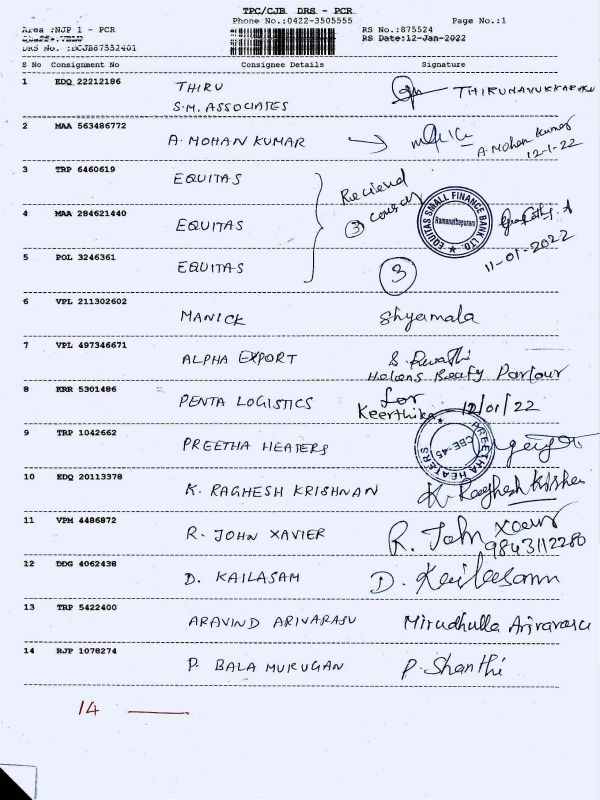 TPC/CJB DRS - PCR
Area :NJP 1 - PCR
Phone No.:0422-3505555
Page No.:1
RS No.:875524
RS Date:12-Jan-2022
S No Consignment No Consignee Details Signature
1 EDQ 22212186 THIRU
S.M. ASSOCIATES
THIRUNAVUKKARASU
2 MAA 563486772 A. MOHAN KUMAR
A. Mohan Kumar
12-1-22
3 TRP 6460619 EQUITAS
Recieved
3
4 MAA 284621440 EQUITAS
EQUITAS SMALL FINANCE BANK LTD.
Ramanathapuram
11-01-2022
5 POL 3246361 EQUITAS
3
6 VPL 211302602 MANICK Shyamala
7 VPL 497346671 ALPHA EXPORT S. Revathi
Helens Beafy Parlour
8 KRR 5301486 PENTA LOGISTICS for
Keerthika 12/01/22
9 TRP 1042662 PREETHA HEATERS
PREETHA HEATERS
CBE-45
10 EDQ 20113378 K. RAGHESH KRISHNAN K. Raghesh Krishnan
11 VPM 4486872 R. JOHN XAVIER R. John Xavier
9843112280
12 DDG 4062438 D. KAILASAM D. Kailasam
13 TRP 5422400 ARAVIND ARIVARASU Mirudhulla Arivarasu
14 RJP 1078274 P. BALA MURUGAN P. Shanthi
14